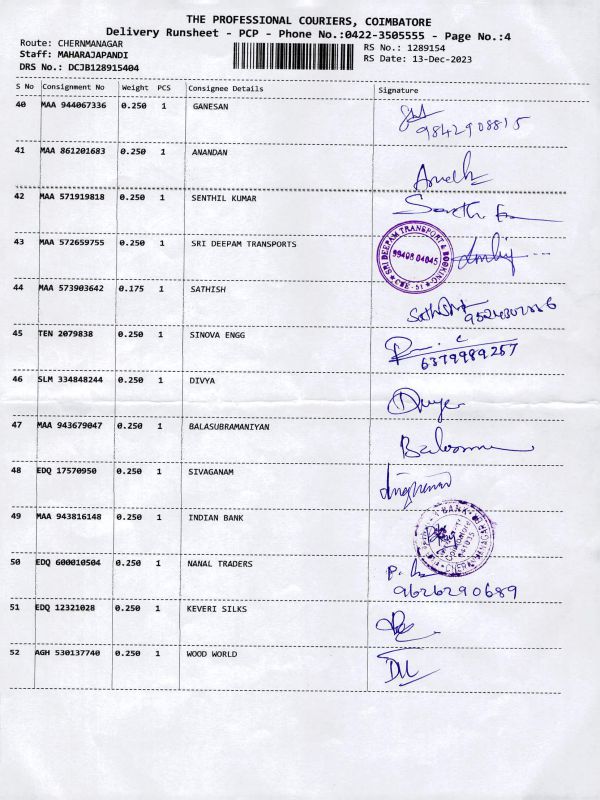 THE PROFESSIONAL COURIERS, COIMBATORE
Delivery Runsheet - PCP - Phone No.:0422-3505555 - Page No.:4
Route: CHERNMANAGAR
Staff: MAHARAJAPANDI
DRS No.: DCJB128915404
RS No.: 1289154
RS Date: 13-Dec-2023
S No Consignment No Weight PCS Consignee Details Signature
40 MAA 944067336 0.250 1 GANESAN
9842908815
41 MAA 861201683 0.250 1 ANANDAN
42 MAA 571919818 0.250 1 SENTHIL KUMAR
43 MAA 572659755 0.250 1 SRI DEEPAM TRANSPORTS
SRI DEEPAM TRANSPORT & BOOKING
CBE - 51
44 MAA 573903642 0.175 1 SATHISH
45 TEN 2079838 0.250 1 SINOVA ENGG
6379989257
46 SLM 334848244 0.250 1 DIVYA
47 MAA 943679047 0.250 1 BALASUBRAMANIYAN
48 EDQ 17570950 0.250 1 SIVAGANAM
49 MAA 943816148 0.250 1 INDIAN BANK
BANK
50 EDQ 600010504 0.250 1 NANAL TRADERS
9626290689
51 EDQ 12321028 0.250 1 KEVERI SILKS
52 AGH 530137740 0.250 1 WOOD WORLD